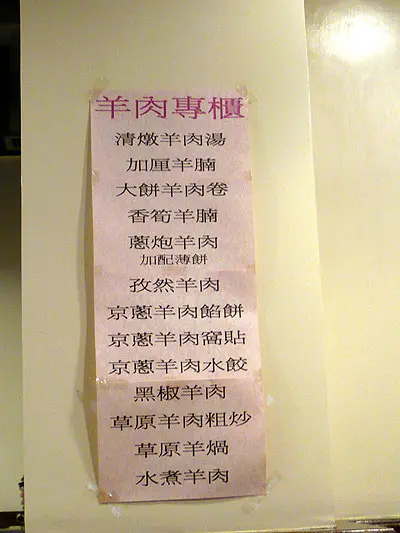 羊肉專櫃
清燉羊肉湯
加厘羊腩
大餅羊肉卷
香筍羊腩
蔥炮羊肉
加配薄餅
孜然羊肉
京蔥羊肉餡餅
京蔥羊肉窩貼
京蔥羊肉水餃
黑椒羊肉
草原羊肉粗炒
草原羊煱
水煮羊肉